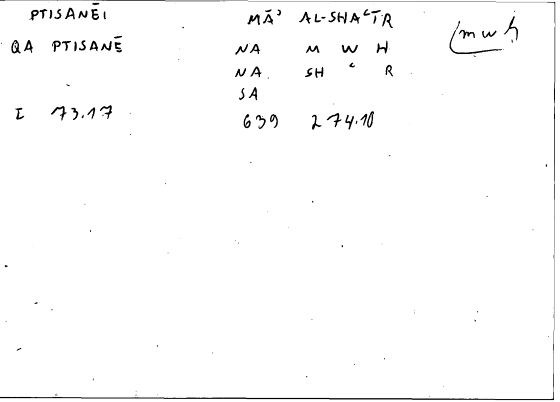 PTISANĒI MĀʾ AL-SHAʿĪR (mwh
QA PTISANĒ NA M W H
NA SH ʿ R
SA
I 73.17 639 274.10